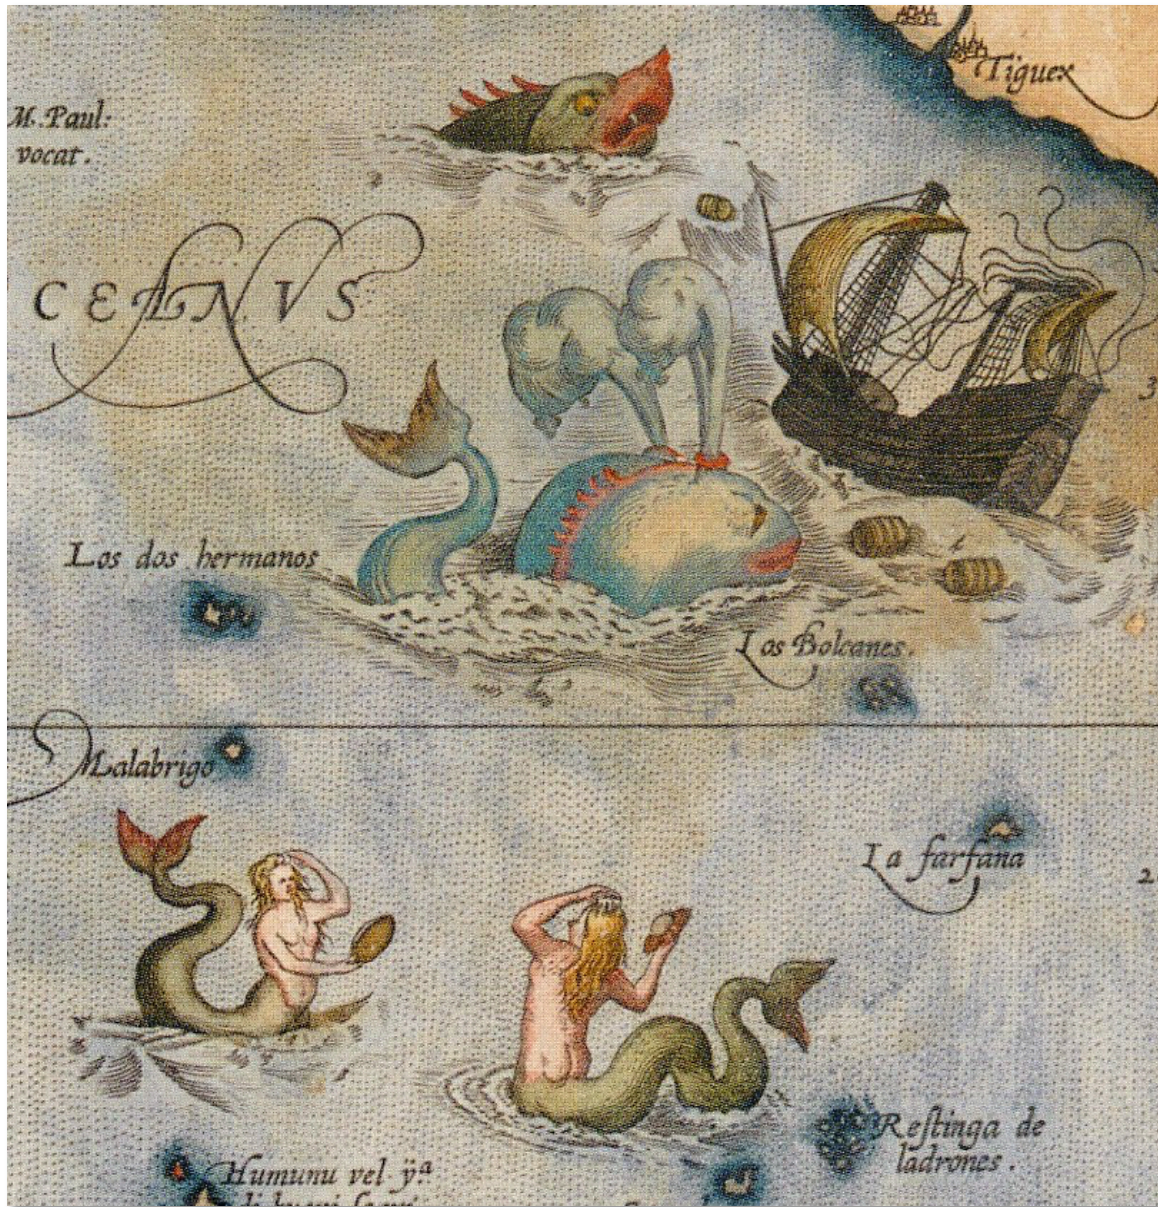 Tiguex
M. Paul:
vocat.
CEANVS
3
Los dos hermanos
Los Bolcanes.
Malabrigo
La farfana
2
Reſtinga de
ladrones.
Humunu vel ÿᵃ